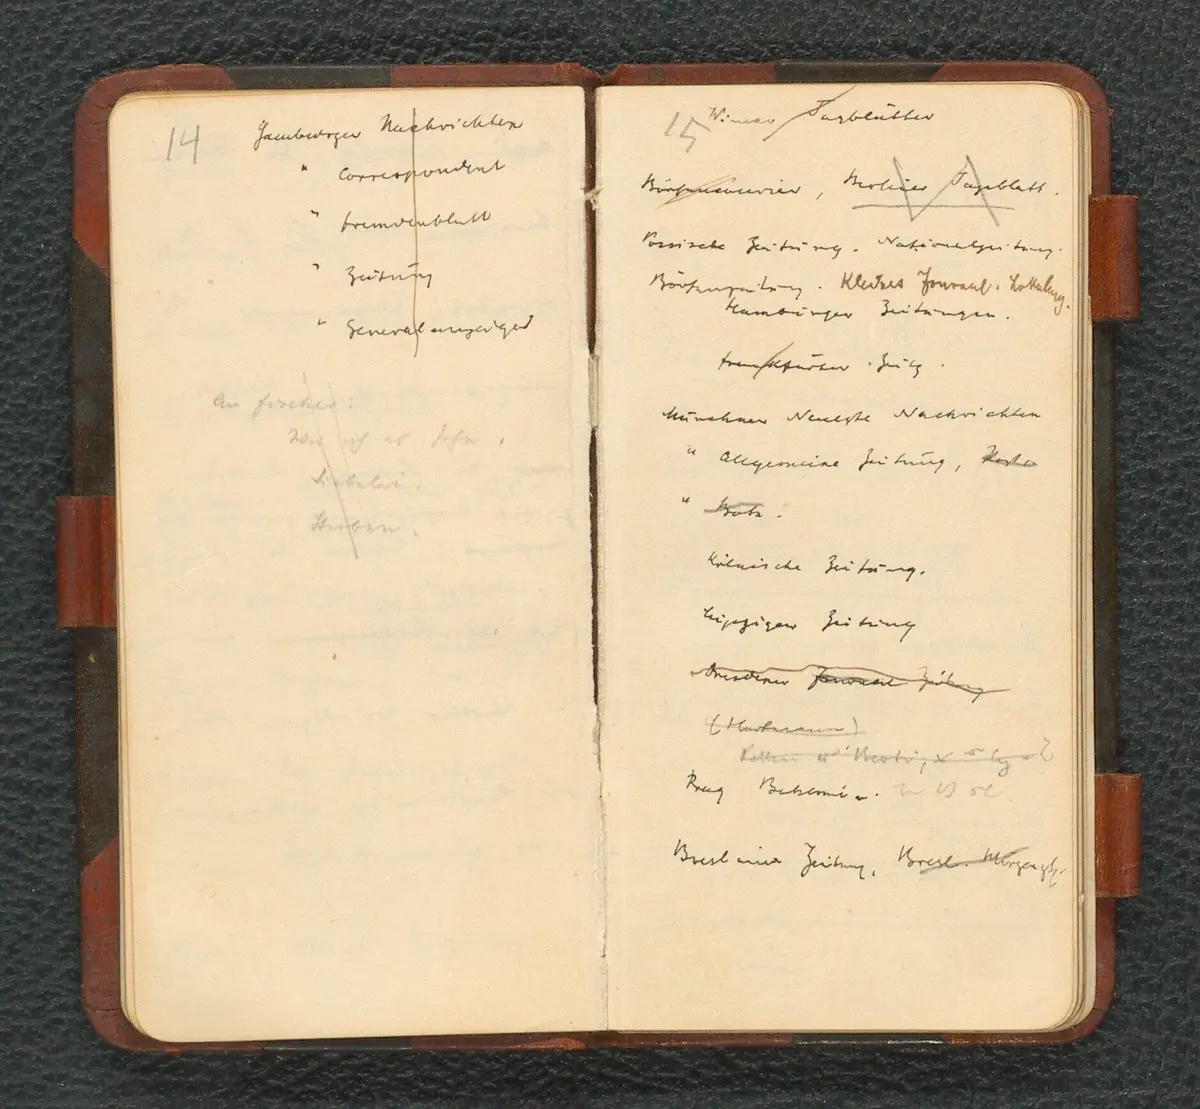 14
Hamburger Nachrichten
" Correspondent
" Fremdenblatt
" Zeitung
" Generalanzeiger
An Fischer:
Wie ich es sehe.
Sterben.
15
Wiener Tagblätter
Börsencourier, Berliner Tageblatt.
Vossische Zeitung. Nationalzeitung.
Börsenzeitung. Kleines Journal.
Hamburger Zeitungen.
Frankfurter Zeitg.
Münchner Neueste Nachrichten
" Allgemeine Zeitung,
"
Kölnische Zeitung.
Leipziger Zeitung
Dresdener Journal Zeitung
(Hartmann)
Prag Bohemia.
Breslauer Zeitung, Bresl. Morgenztg.